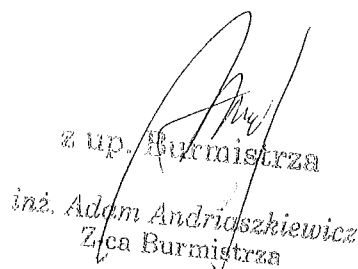 z up. Burmistrza
inż. Adam Andriaszkiewicz
Z-ca Burmistrza